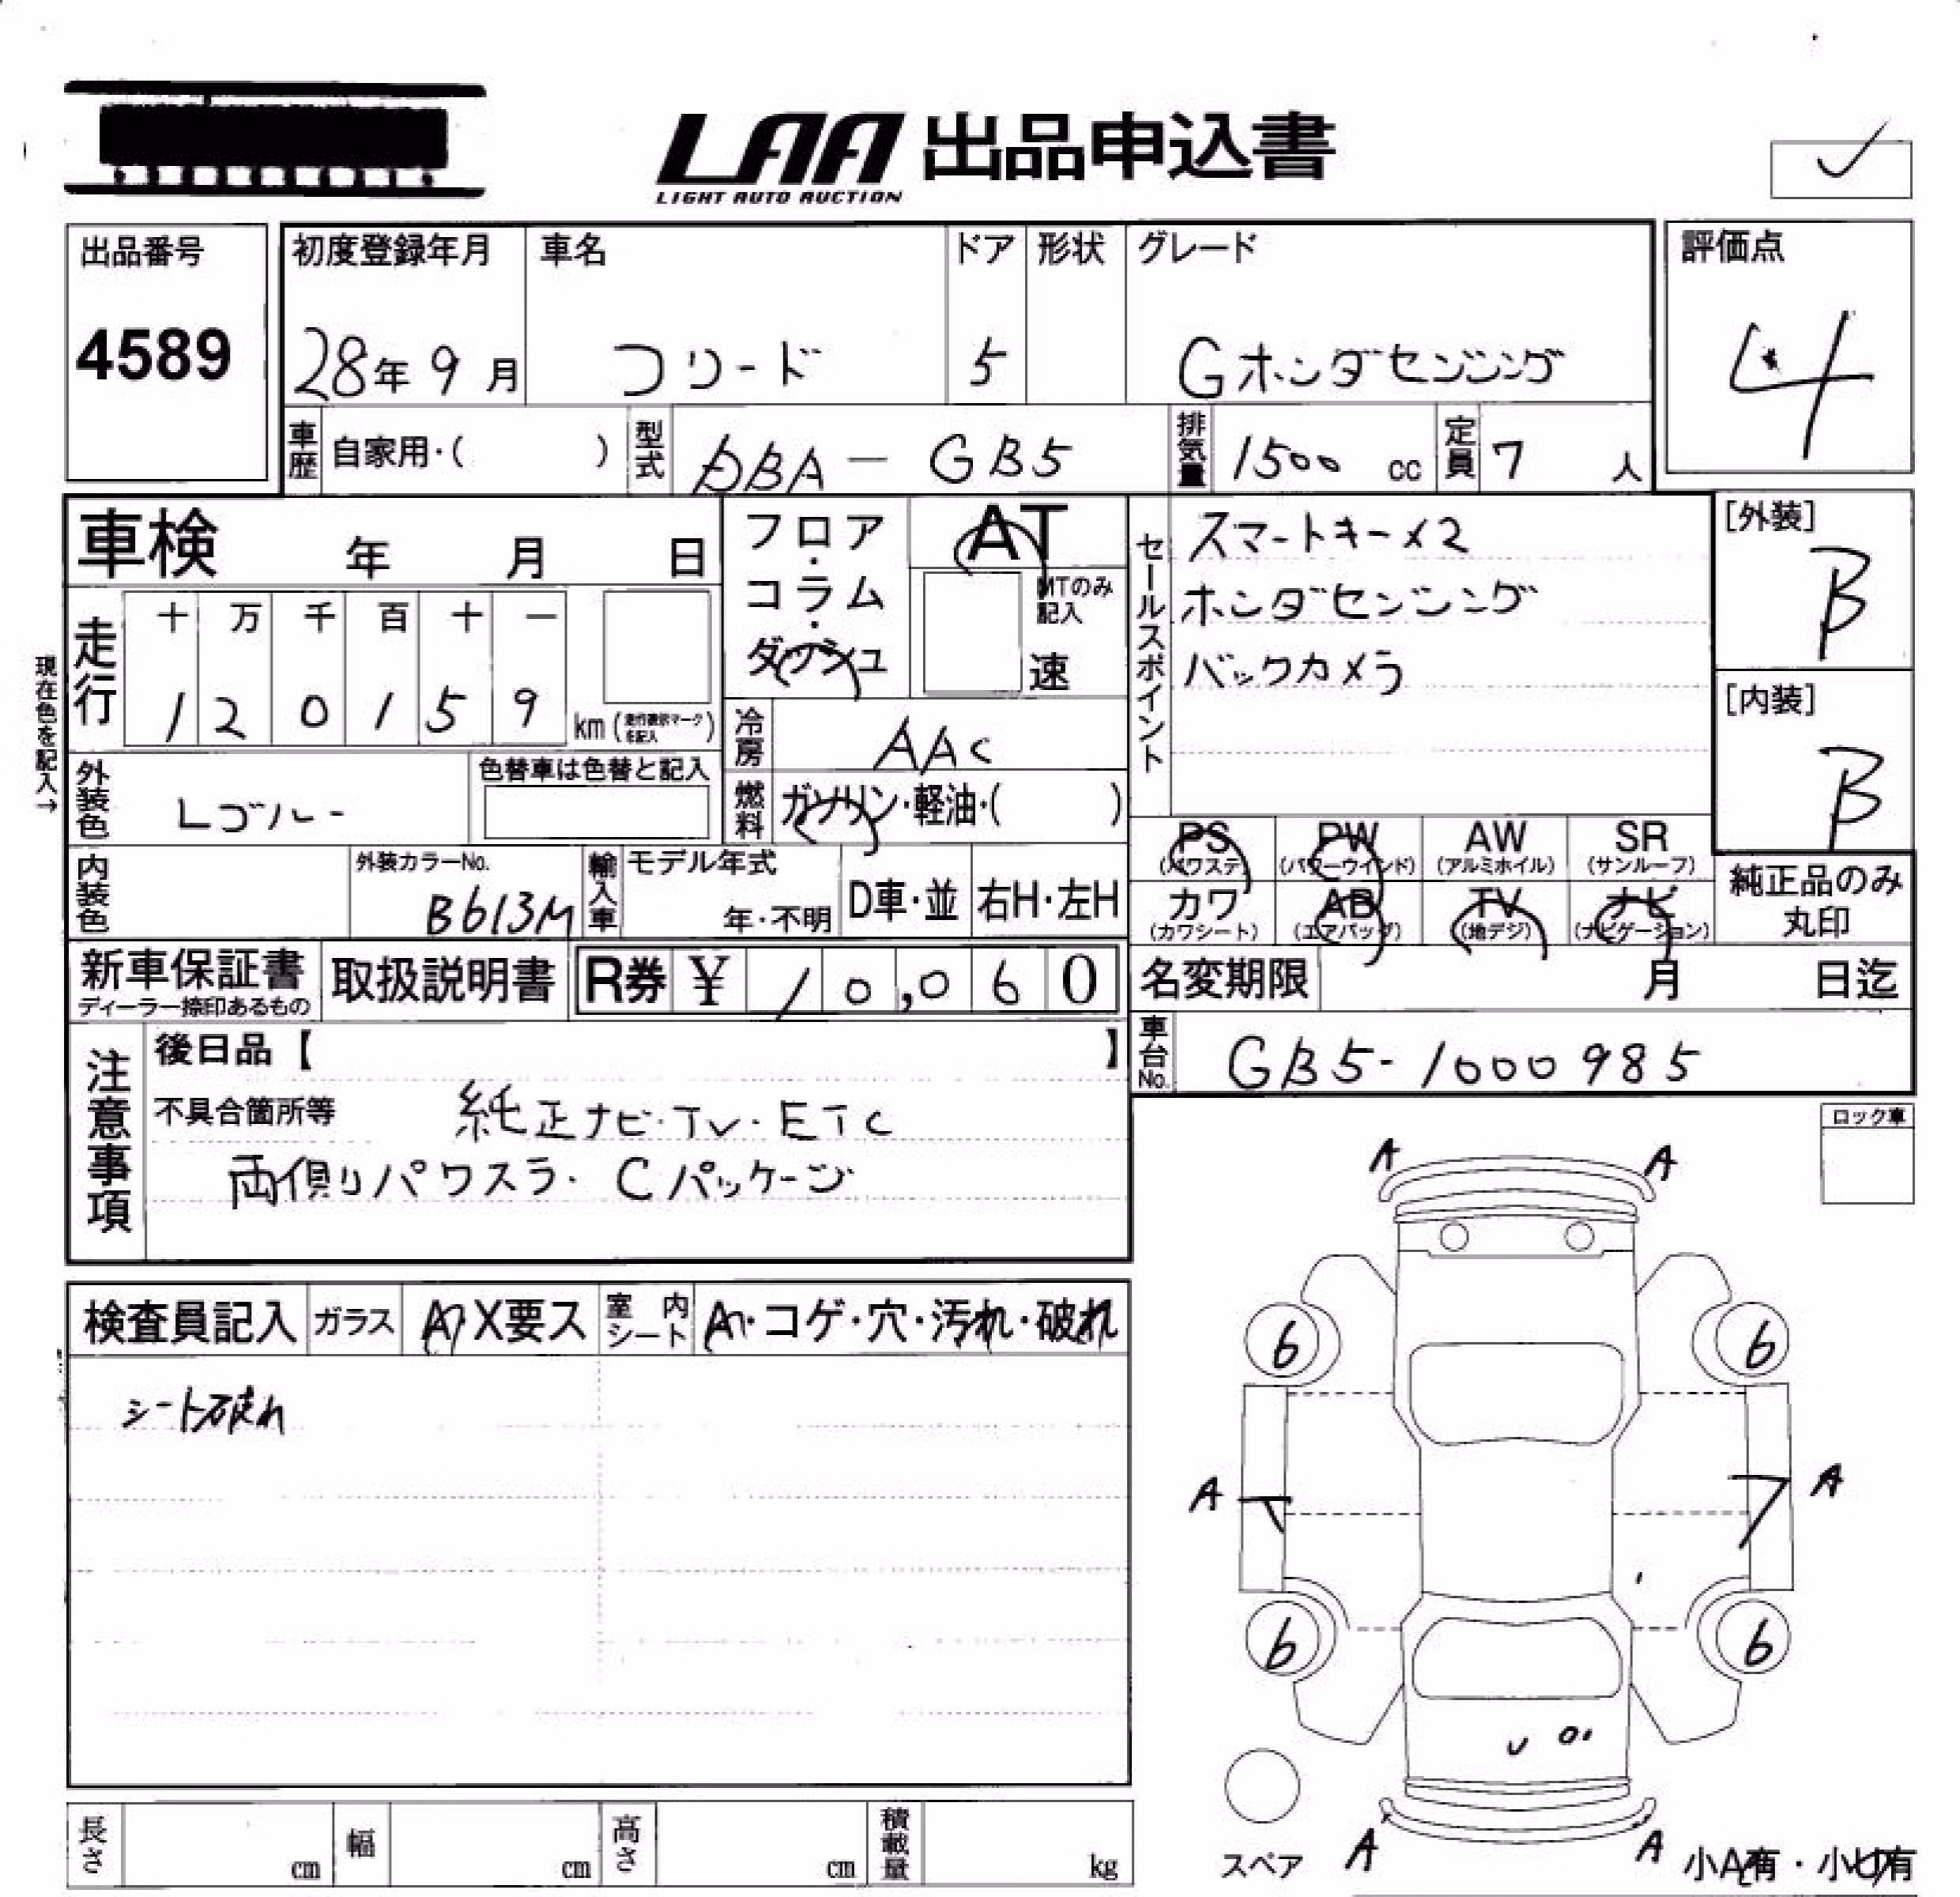 LAA 出品申込書
LIGHT AUTO AUCTION
出品番号
4589
初度登録年月 車名 ドア 形状 グレード
28年 9月 フリード 5 Gホンダセンシング
評価点
4
車歴 自家用・( ) 型式 DBA - GB5 排気量 1500 cc 定員 7 人
車検 年 月 日
フロア・コラム・ダッシュ
AT
MTのみ記入
速
セールスポイント
スマートキー×2
ホンダセンシング
バックカメラ
[外装]
B
[内装]
B
現在色を記入→
走行
十 万 千 百 十 一
1 2 0 1 5 9 km (走行表示マークを記入)
冷房 AAC
外装色 Lゴルー
色替車は色替と記入
燃料 ガソリン・軽油・( )
PS (パワステ) PW (パワーウインド) AW (アルミホイル) SR (サンルーフ)
カワ (カワシート) AB (エアバッグ) TV (地デジ) ナビ (ナビゲーション)
純正品のみ丸印
内装色
外装カラーNo.
B613M
輸入車 モデル年式
年・不明
D車・並 右H・左H
新車保証書
ディーラー捺印あるもの
取扱説明書
R券 ¥ 10,060
名変期限 月 日迄
車台No. GB5-1000985
注意事項
後日品【 】
不具合箇所等 純正ナビ・TV・ETC
両側パワスラ・Cパッケージ
ロック車
検査員記入 ガラス A X要ス 室内シート A・コゲ・穴・汚れ・破れ
シート破れ
A A
6 6
A A
6 6
スペア A A 小A有・小U有
長さ cm 幅 cm 高さ cm 積載量 kg